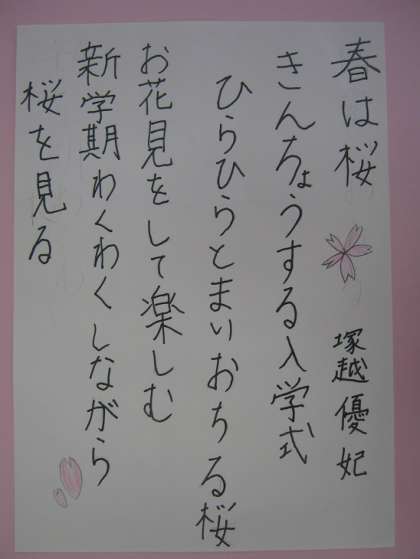 春は桜
塚越優妃
きんちょうする入学式
ひらひらとまいおちる桜
お花見をして楽しむ
新学期わくわくしながら
桜を見る